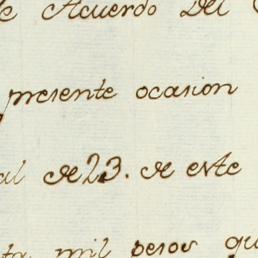 de Acuerdo Del
presente ocasion
al de 23. de este
ta mil pesos qu